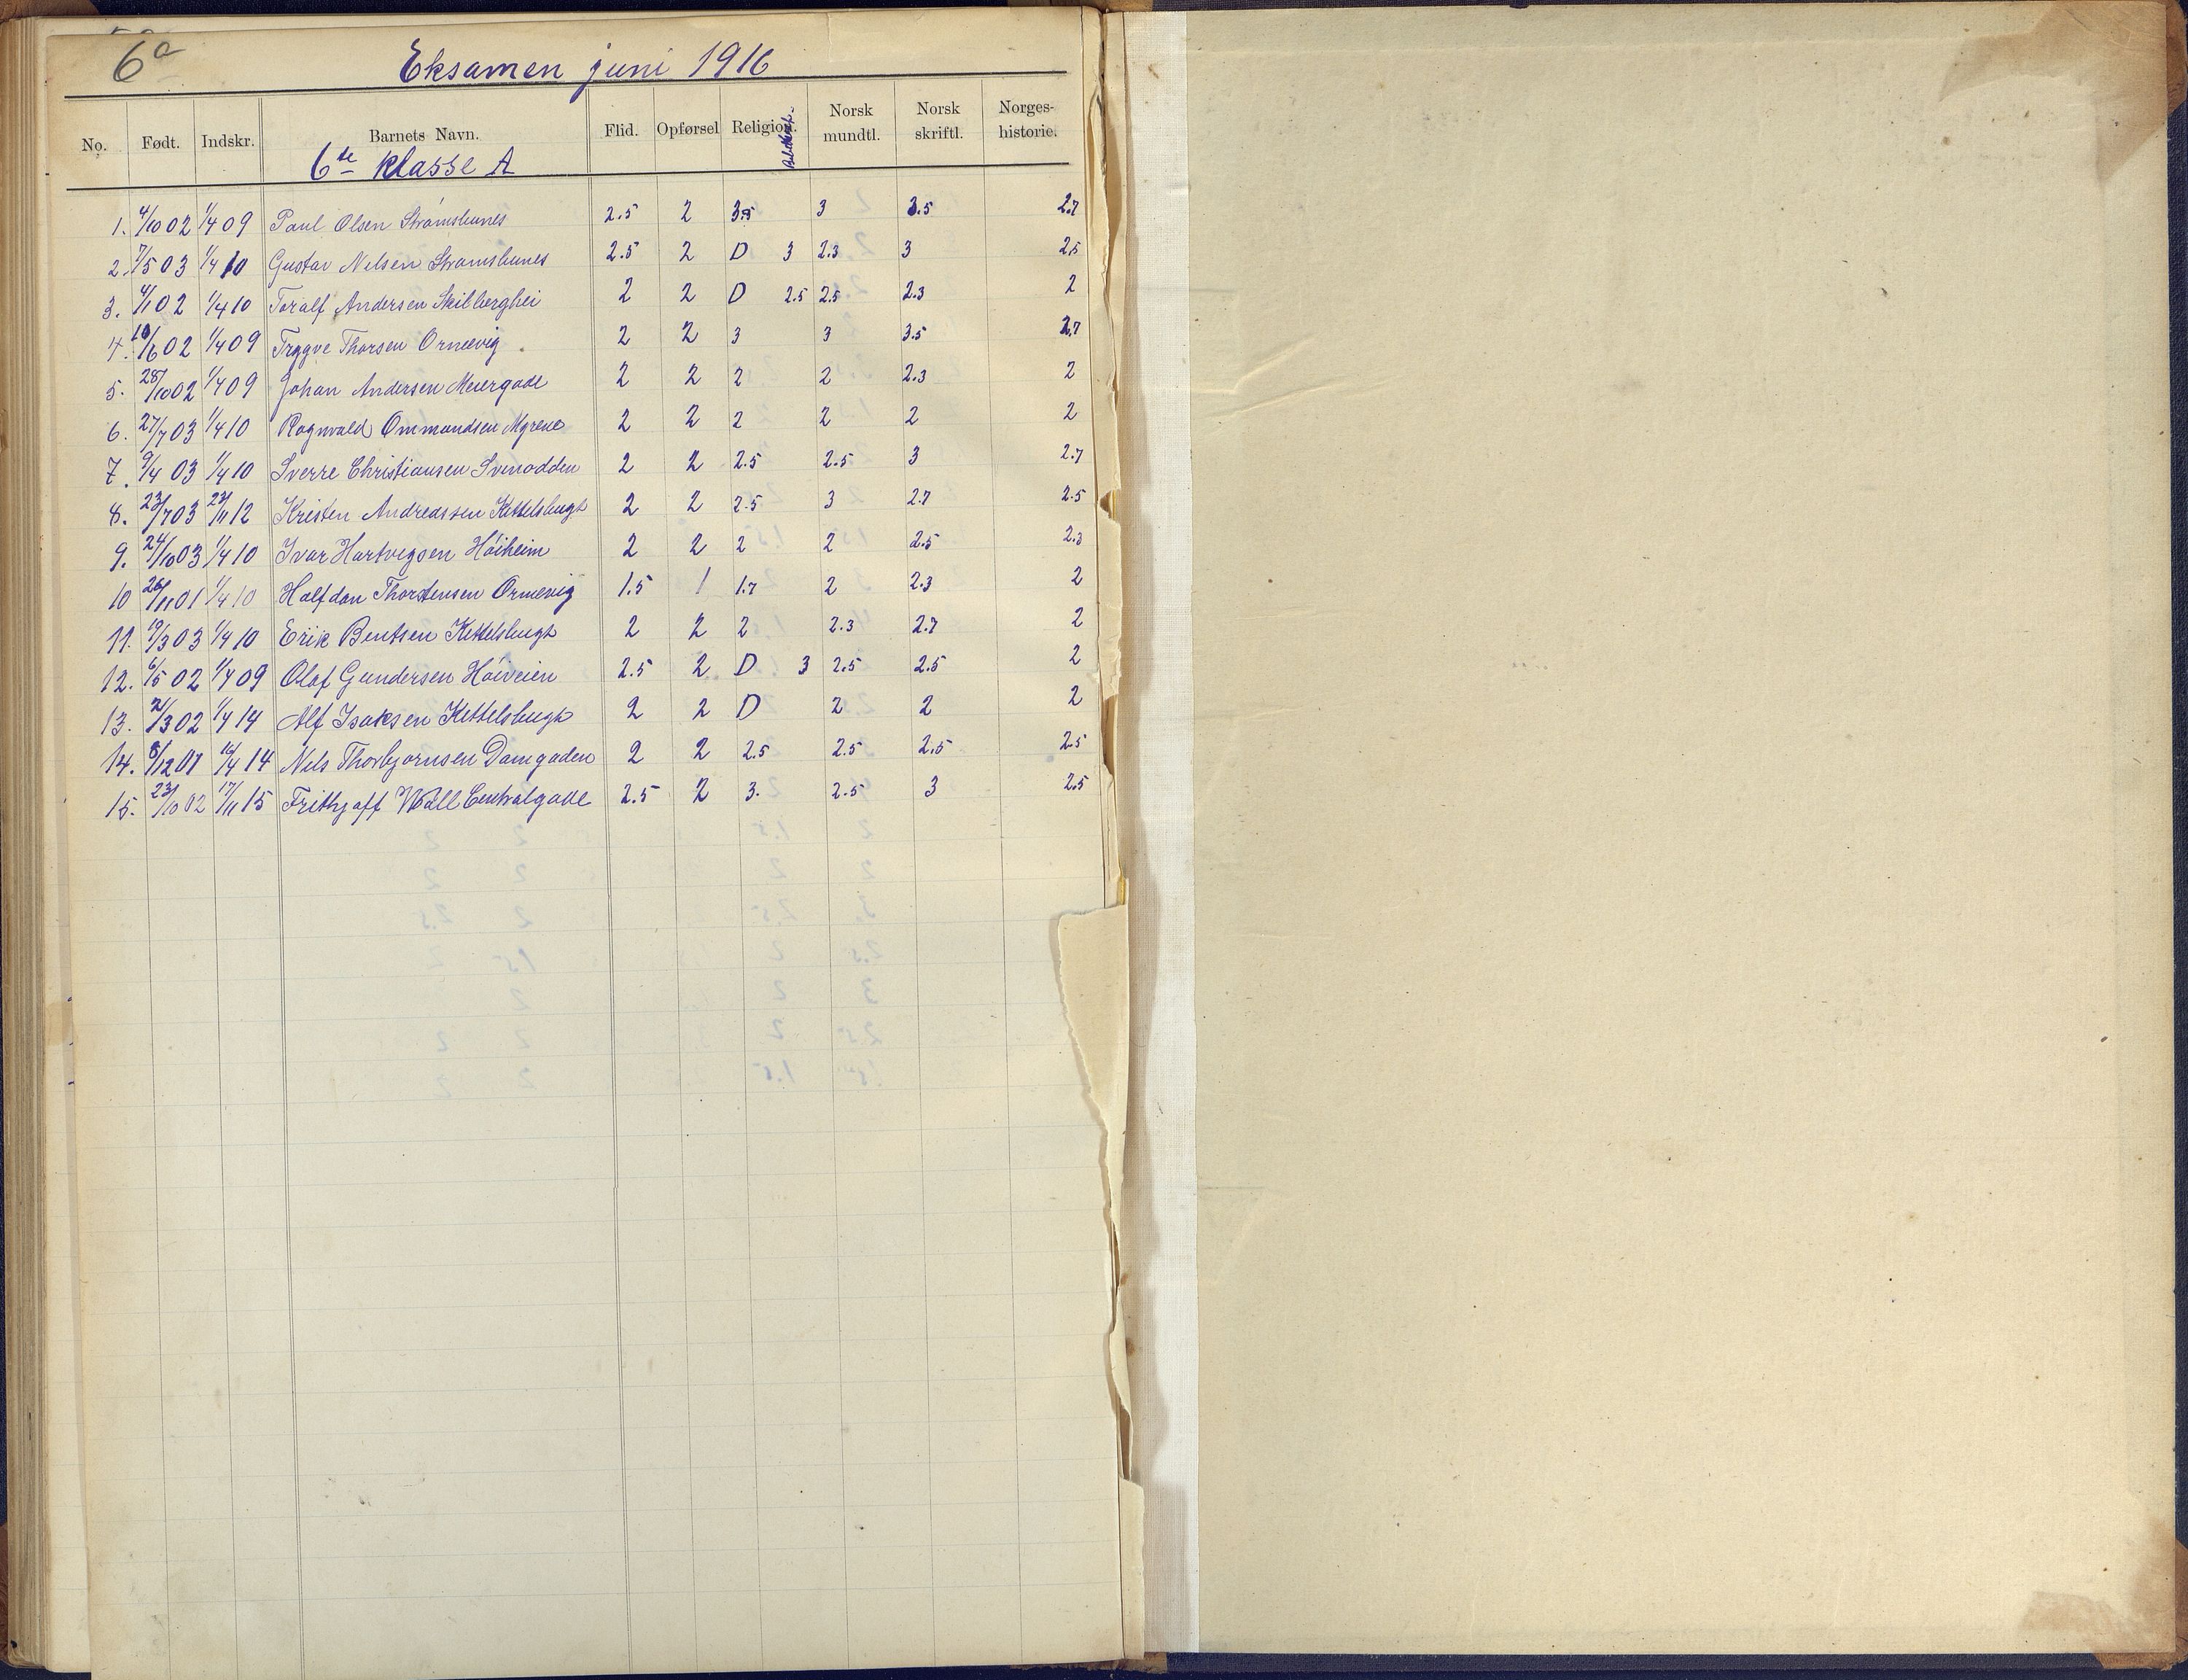 6a
Eksamen juni 1916
No. Født. Indskr. Barnets Navn. Flid. Opførsel Religion. Norsk mundtl. Norsk skriftl. Norges-historie.
6te klasse A
1. 4/10 02 1/4 09 Paul Olsen Strømsbunes 2.5 2 3.5 3 3.5 2.7
2. 7/5 03 1/4 10 Gustav Nilsen Strømsbunes 2.5 2 D 3 2.3 3 2.5
3. 4/1 02 1/4 10 Toralf Andersen Skilberghei 2 2 D 2.5 2.5 2.3 2
4. 10/6 02 1/4 09 Trygve Thorsen Ormevig 2 2 3 3 3.5 2.7
5. 28/10 02 1/4 09 Johan Andersen Meiergade 2 2 2 2 2.3 2
6. 27/7 03 1/4 10 Ragnvald Ommundsen Myrene 2 2 2 2 2 2
7. 9/4 03 1/4 10 Sverre Christiansen Svenodden 2 2 2.5 2.5 3 2.7
8. 23/7 03 23/11 12 Kristen Andreassen Kittelsbugt 2 2 2.5 3 2.7 2.5
9. 24/10 03 1/4 10 Ivar Hartvigsen Høiheim 2 2 2 2 2.5 2.3
10 26/11 01 1/4 10 Halfdan Thorstensen Ormevig 1.5 1 1.7 2 2.3 2
11. 19/3 03 1/4 10 Erik Bentsen Kittelsbugt 2 2 2 2.3 2.7 2
12. 6/5 02 1/4 09 Olaf Gundersen Høiveien 2.5 2 D 3 2.5 2.5 2
13. 21/3 02 1/4 14 Alf Isaksen Kittelsbugt 2 2 D 2 2 2
14. 8/12 01 16/4 14 Nils Thorbjørnsen Damgaden 2 2 2.5 2.5 2.5 2.5
15. 23/10 02 17/11 15 Frithjoff Wall Centralgade 2.5 2 3. 2.5 3 2.5